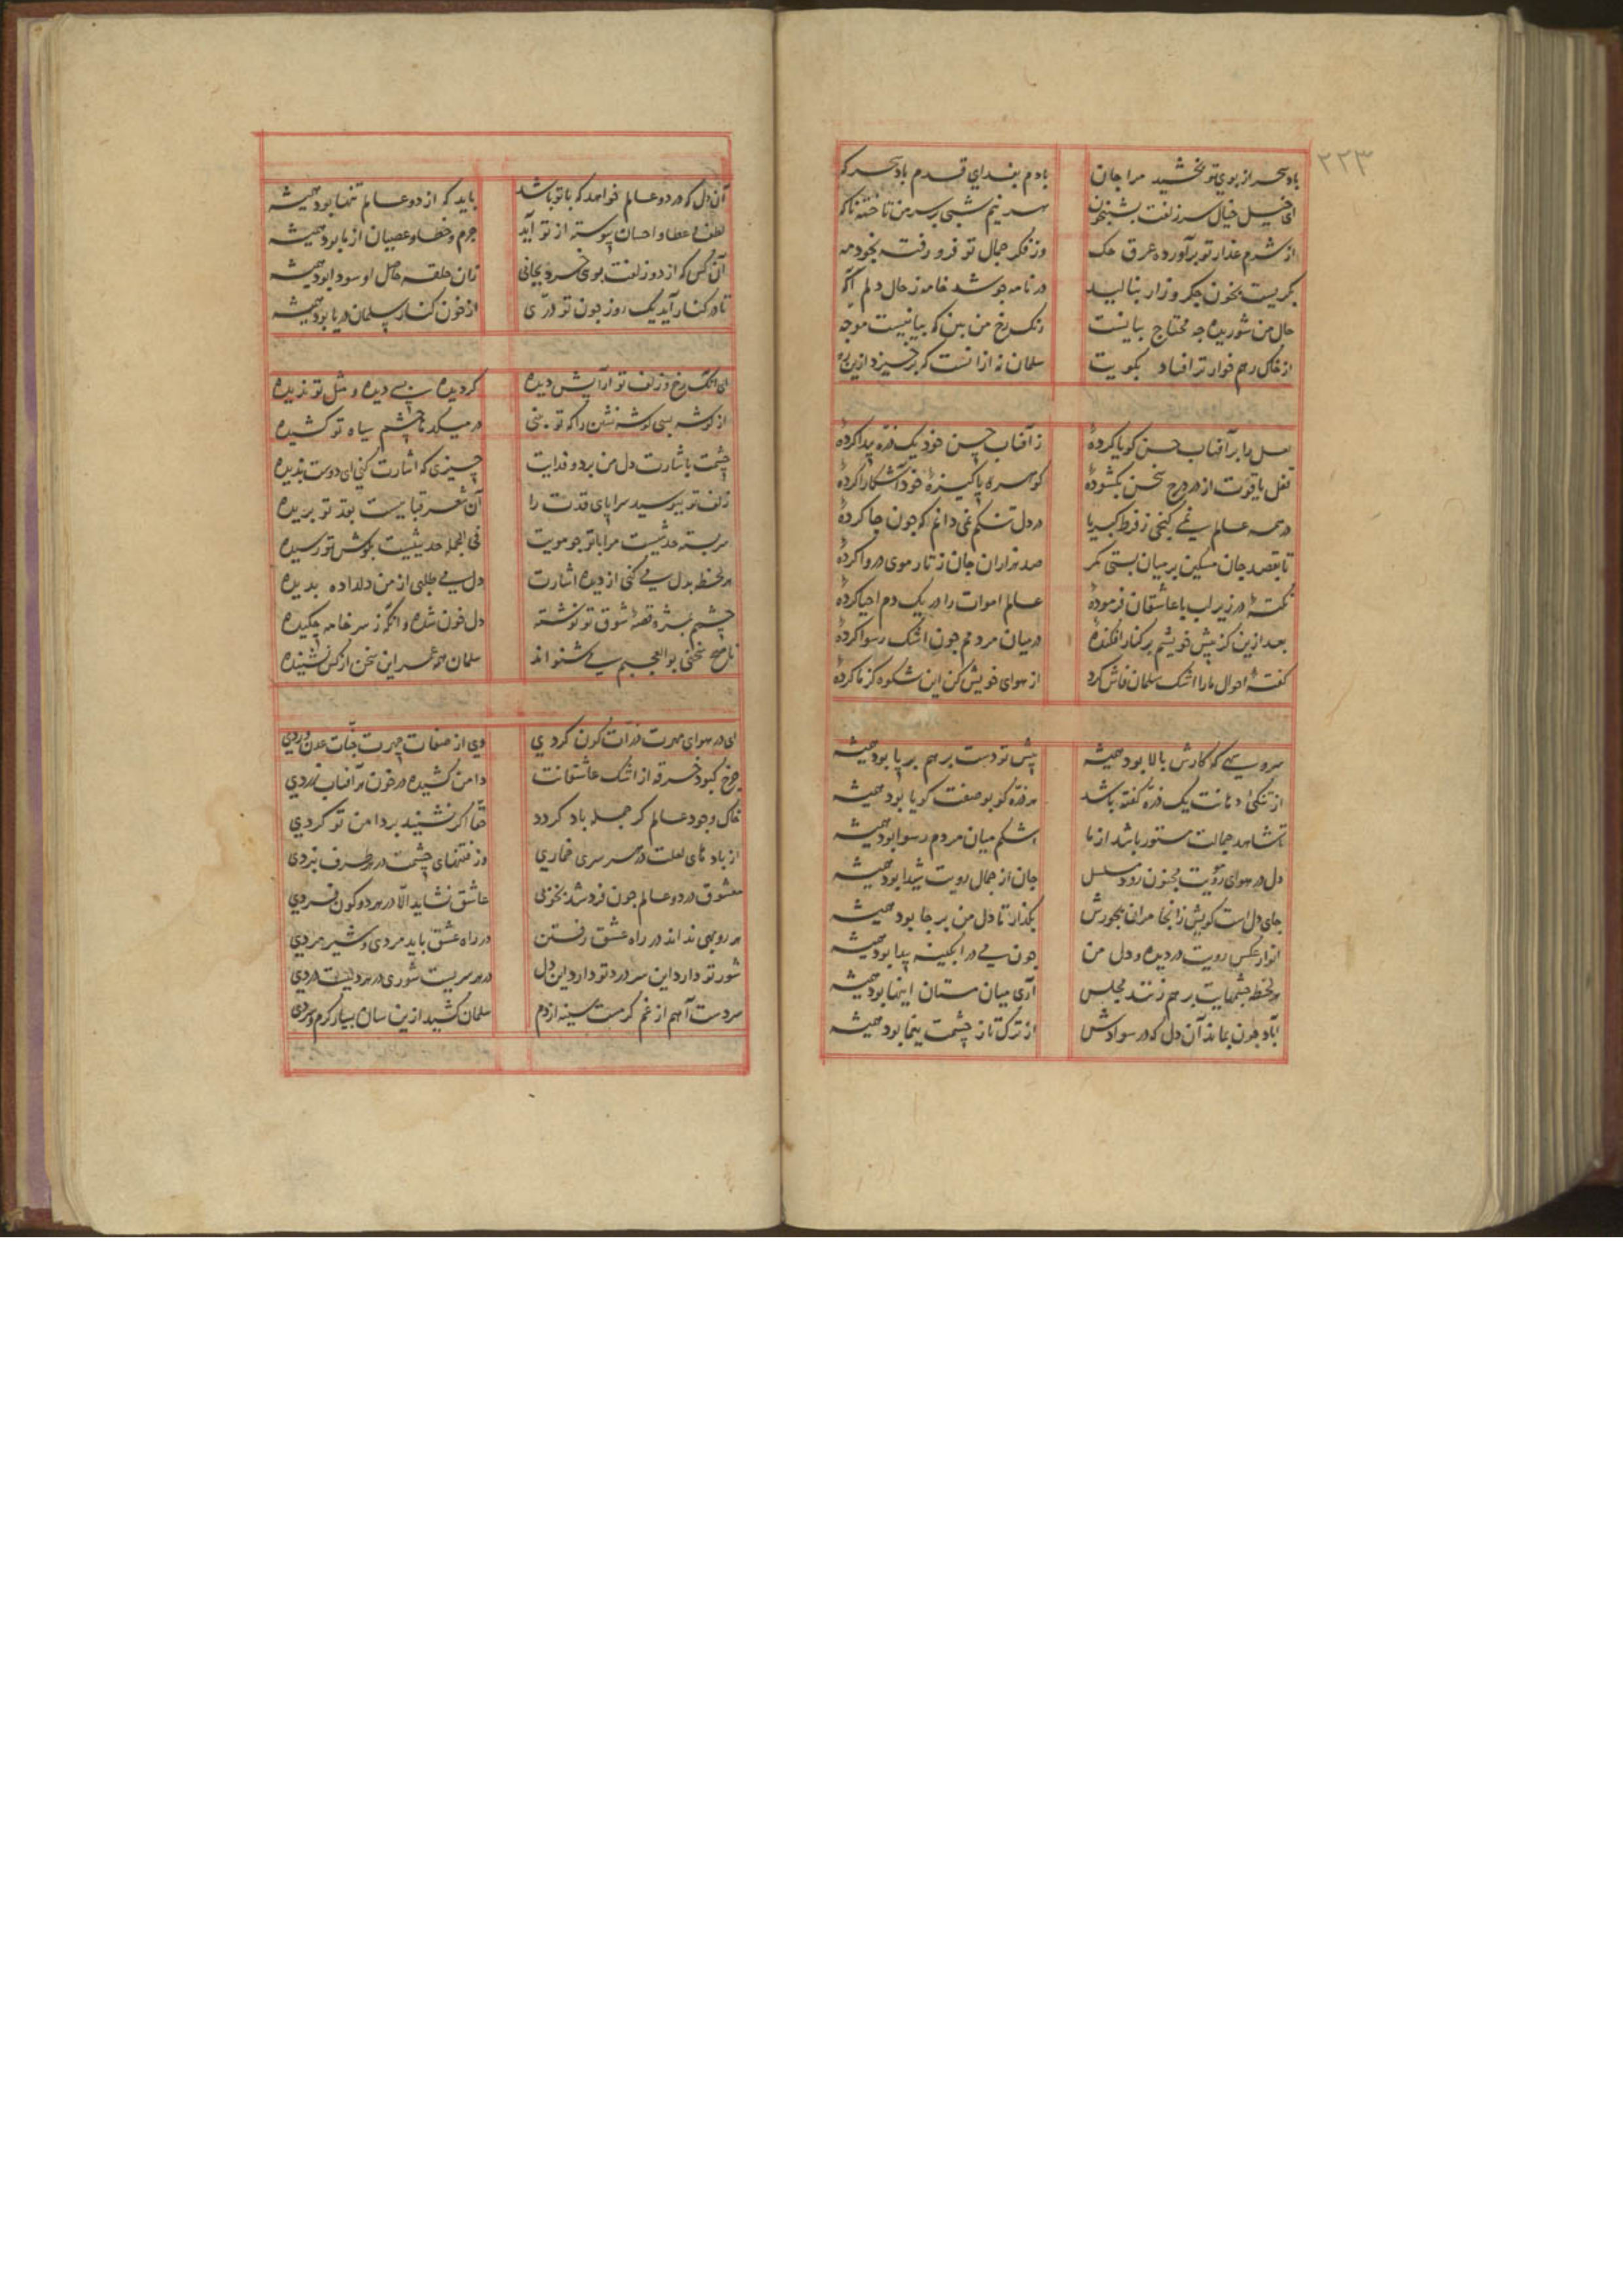 ۲۲۳
باد سحر از بوی تو بخشید مرا جان بادم بفدای قدم باد سحر که
ای خیل خیال سر زلفت بشبیخون هر نیم شبی بر سر من تاخته ناکه
از شرم عذار تو برآورده عرق وز فکر جمال تو فرو رفته بخود مه
بکریست بخون جکر و زار بنالید در نامه جو شد خامه ز حال دلم آکه
حال من شوریده جه محتاج بیانست رنک رخ من بین که بیانیست موجه
از خاک رهم خوارتر افتاد بکویت سلمان نه از انست که برخیزد ازین ره
لعل را بر آفتاب حسن کویا کردهٔ ز آفتاب حسن خود یک ذره پیدا کردهٔ
قفل یاقوت از در درج سخن بکشودهٔ کوهر پاکیزهٔ خود آشکارا کردهٔ
در همه عالم نمی کنجی ز فرط کبریا در دل تنکم نمی دانم که جون جا کردهٔ
تا بقصد جان مسکین بر میان بستی کمر صد هزاران جان ز تار موی در وا کردهٔ
نکتهٔ در زیر لب با عاشقان فرمودهٔ عالم اموات را در یک دم احیا کردهٔ
بعد ازین کز پیش خویشم بر کنار افکندهٔ در میان مردمم جون اشک رسوا کردهٔ
کفتهٔ احوال ما را اشک سلمان فاش کرد از هوای خویش کن این شکوه کز ما کردهٔ
سرو سهی که کارش بالا بود همیشه پیش تو دست بر هم بر پا بود همیشه
از تنکی دهانت یک ذره کفته باشد هر ذره کو بوصفت کویا بود همیشه
تا شاهد جمالت مستور باشد از ما اشکم میان مردم رسوا بود همیشه
دل در هوای رویت مجنون رود مسلسل جان از جمال رویت شیدا بود همیشه
جای دل است کویش زانجا مران بجورش بکذار تا دل من بر جا بود همیشه
انوار عکس رویت در دیده و دل من جون می در آبکینه پیدا بود همیشه
هر لحظه جشمهایت بر هم زنند مجلس آری میان مستان اینها بود همیشه
آباد جون بماند آن دل که در سوادش از ترک تاز چشمت یغما بود همیشه
آن دل که در دو عالم خواهد که با تو باشد باید که از دو عالم تنها بود همیشه
لطف و عطا و احسان پیوسته از تو آید جرم و خطا و عصیان از ما بود همیشه
آن کس که از دو زلفت بوی خرد بجانی زان حلقه حاصل او سودا بود همیشه
تا در کنار آید یک روز جون تو درّی از خون کنار سلمان دریا بود همیشه
ای آنک رخ و زلف تو آرایش دیده کردیده بسی دیده و مثل تو ندیده
از کوشه بسی کوشه نشین را که تو بینی در میکده ها چشم سیاه تو کشیده
چشمت باشارت دل من برد و فدایت چیزی که اشارت کنی ای دوست بدیده
زلف تو ببوسید سراپای قدت را آن شعر قباییست بقد تو بریده
سربسته حدثیست مرا با تو جو مویت فی الجمله حدیثیست بکوش تو رسیده
هر لحظه بدل می کنی از دیده اشارت دل می طلبی از من دلداده بدیده
چشمم بمژه قصهٔ شوق تو نوشته دل خون شده وانکه ز سر خامه چکیده
ناصح سخنی بوالعجبم می شنواند سلمان همه عمر این سخن از کس نشنیده
ای در هوای مهرت ذرات کون کردی وی از صفات چهرت جنات عدن وردی
چرخ کبود خرقه از اشک عاشقانت دامن کشیده در خون بر آفتاب زردی
خاک وجود عالم کر جمله باد کردد حقا اکر نشیند بر دامن تو کردی
از باده های لعلت در هر سری خماری وز فتنهای چشمت در هر طرف نبردی
معشوق در دو عالم جون فرد شد بخوبی عاشق نشاید الّا در هر دو کون فردی
هر روبهی نداند در راه عشق رفتن در راه عشق باید مردی و شیر مردی
شور تو دارد این سر درد تو دارد این دل در هر سریست شوری در هر دلیست دردی
سردست آهم از غم کرمست سینه از دم سلمان کشید ازین سان بسیار کرم و سردی